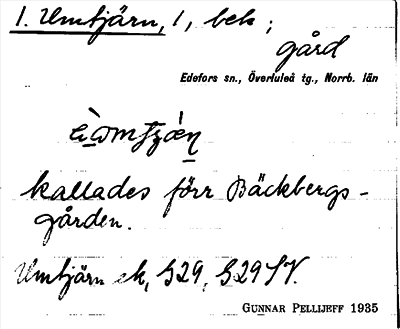 1. Umtjärn, 1, bek;
gård
Edefors sn., Överluleå tg., Norrb. län
kallades förr Bäckbergs-
gården.
Umtjärn ek, S29, S29 SV.
GUNNAR PELLIJEFF 1935